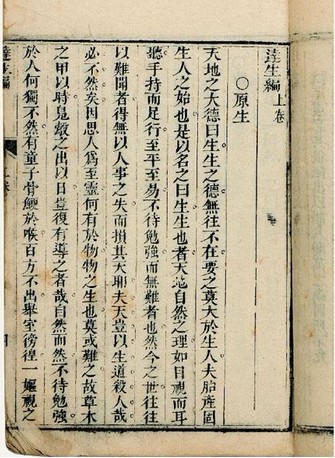 達生編上卷
○原生
天地之大德曰生生之德無往不在要之莫大於生人夫胎產固
生人之始也是以名之曰生生也者天地自然之理如目視而耳
聽手持而足行至平至易不待勉強而無難者也然今之世往往
以難聞者得無以人事之失而損其天耶夫天豈以生道殺人哉
必不然矣因思人爲至靈何有於物物之生也莫或難之故草木
之甲以時之出以日豈復有導之者哉自然而然不待勉強
於人何獨不然有童子骨鯁於喉百方不出舉室徬徨一嫗視之
達生編